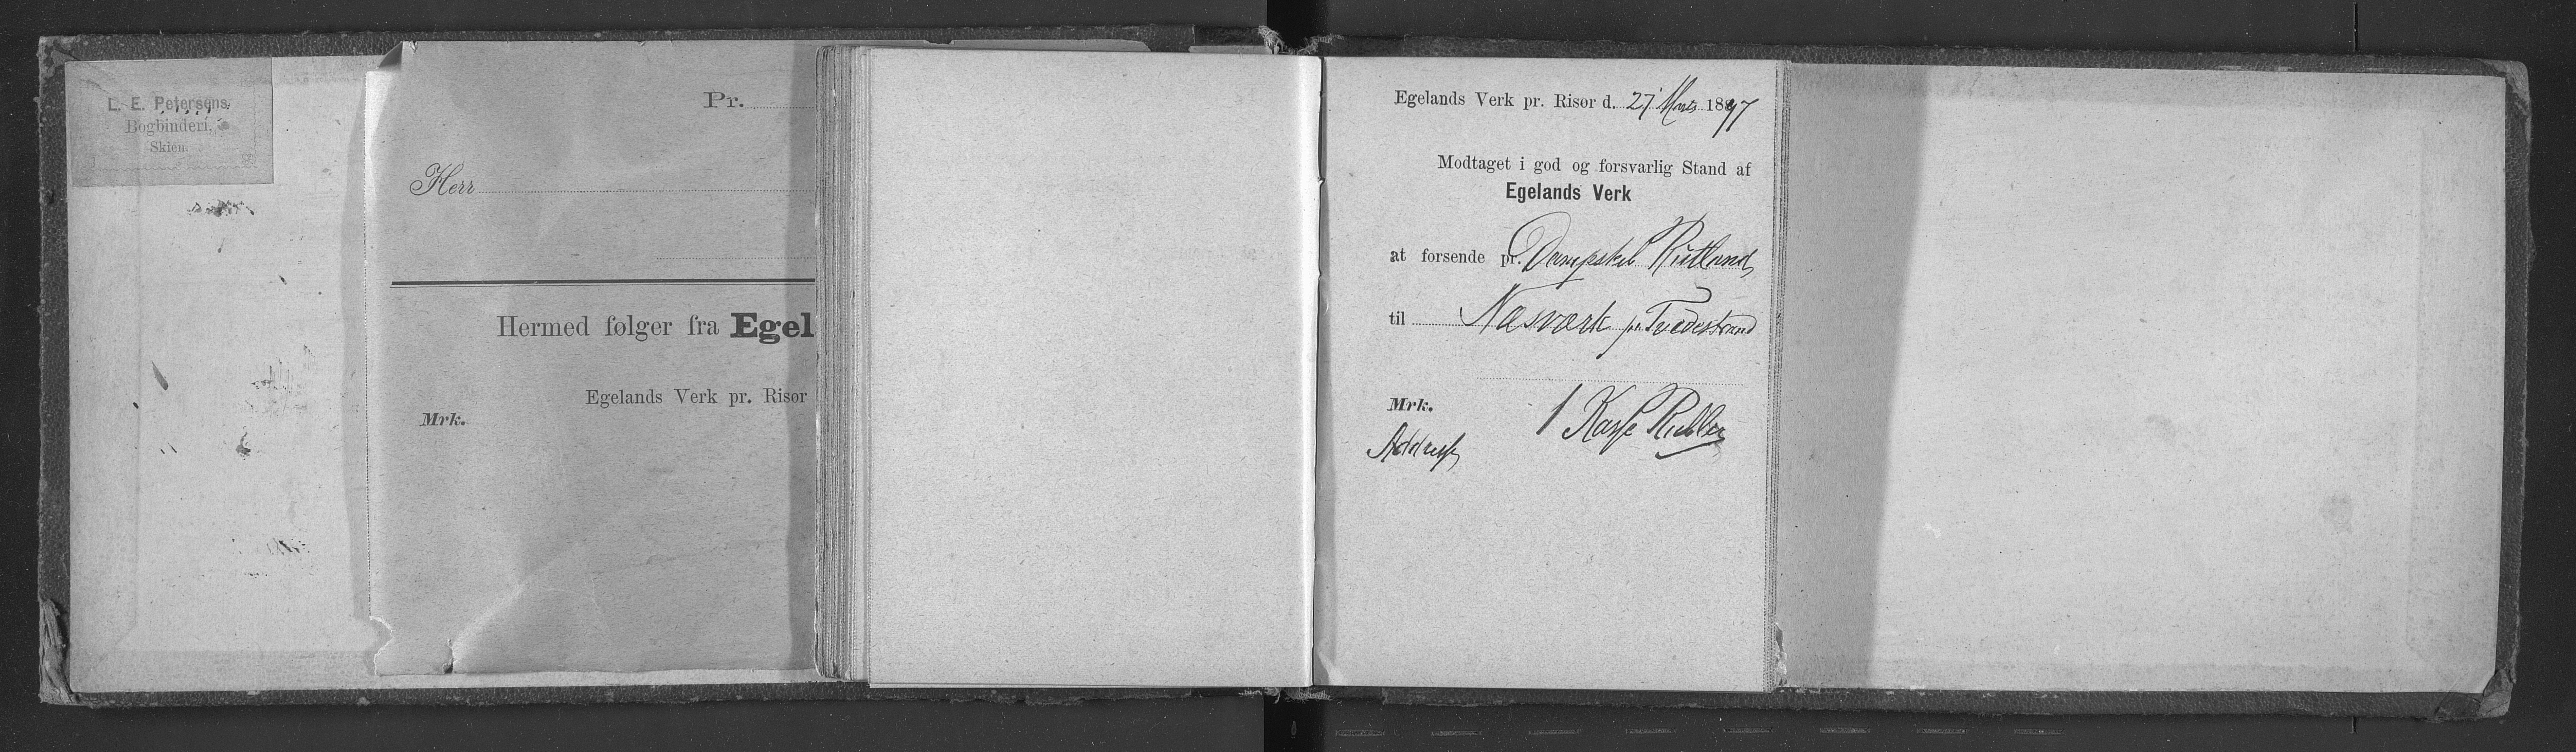 L. E. Petersens
Bogbinderi.
Skien.
Pr.
Herr
Hermed følger fra Egel
Egelands Verk pr. Risør
Mrk.
Egelands Verk pr. Risør d. 27 Marts 1897
Modtaget i god og forsvarlig Stand af
Egelands Verk
at forsende pr. Dampskib Rutland
til Næsværk pr Tvedestrand
Mrk. 1 Kasse Ruller
Adresse